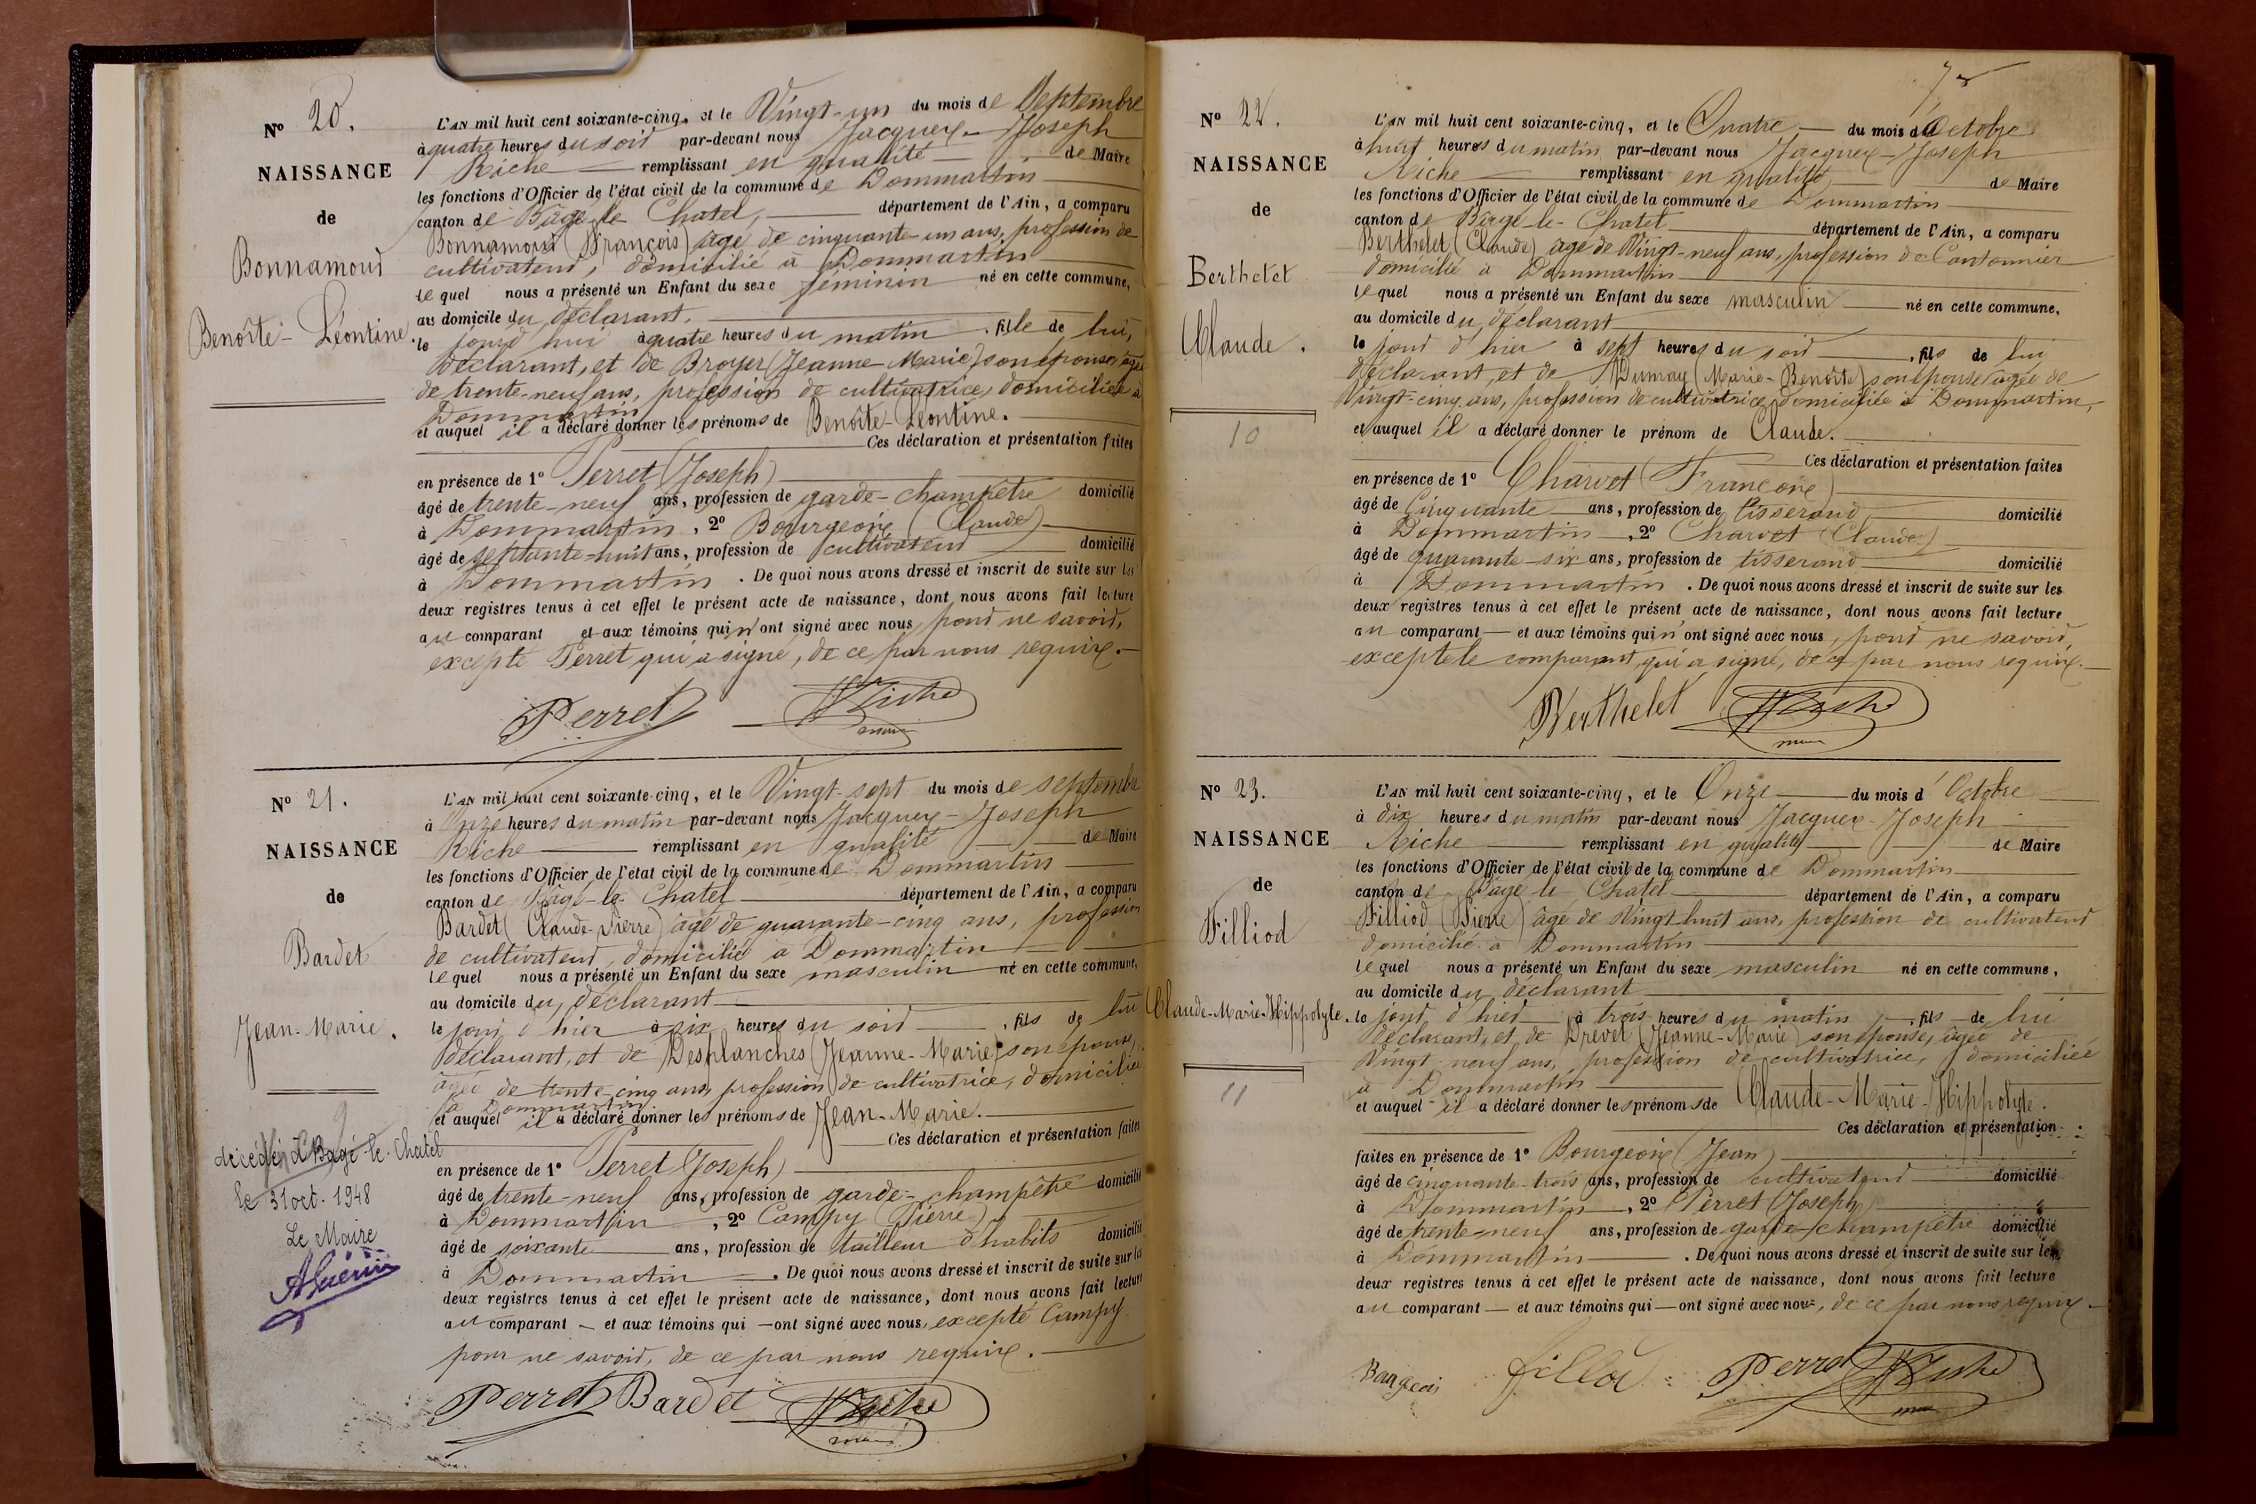 N° 20.
NAISSANCE
de
Bonnamour
Benoîte-Léontine.
L'AN mil huit cent soixante-cinq, et le Vingt-un du mois de Septembre
à quatre heures du soir par-devant nous Jacques-Joseph
Riche remplissant en qualité de Maire
les fonctions d'Officier de l'état civil de la commune de Dommartin
canton de Bâgé-le-Chatel, département de l'Ain, a comparu
Bonnamour (François) âgé de cinquante-un ans, profession de
cultivateur, domicilié à Dommartin
lequel nous a présenté un Enfant du sexe féminin né en cette commune,
au domicile du déclarant.
le jourd'hui à quatre heures du matin, fille de lui,
déclarant, et de Broyer (Jeanne-Marie) son épouse, âgée
de trente-neuf ans, profession de cultivatrice, domiciliée à
Dommartin
et auquel il a déclaré donner les prénoms de Benoîte-Léontine.
Ces déclaration et présentation faites
en présence de 1° Perret (Joseph)
âgé de trente-neuf ans, profession de garde-champêtre domicilié
à Dommartin, 2° Bourgeois (Claude)
âgé de septante-huit ans, profession de cultivateur domicilié
à Dommartin. De quoi nous avons dressé et inscrit de suite sur les
deux registres tenus à cet effet le présent acte de naissance, dont nous avons fait lecture
au comparant et aux témoins qui n'ont signé avec nous, pour ne savoir,
excepté Perret qui a signé, de ce par nous requis.
Perret Riche
maire
N° 21.
NAISSANCE
de
Bardet
Jean-Marie.
9
décédé à Bâgé-le-Chatel
le 31 oct. 1948
Le Maire
AGuérin
L'AN mil huit cent soixante-cinq, et le Vingt-sept du mois de septembre
à Onze heures du matin par-devant nous Jacques-Joseph
Riche remplissant en qualité de Maire
les fonctions d'Officier de l'état civil de la commune de Dommartin
canton de Bâgé-le-Chatel département de l'Ain, a comparu
Bardet (Claude-Pierre) âgé de quarante-cinq ans, profession
de cultivateur, domicilié à Dommartin
lequel nous a présenté un Enfant du sexe masculin né en cette commune,
au domicile du déclarant
le jour d'hier à six heures du soir, fils de lui
déclarant, et de Desplanches (Jeanne-Marie) son épouse,
âgée de trente-cinq ans, profession de cultivatrice, domiciliée
à Dommartin
et auquel il a déclaré donner les prénoms de Jean-Marie.
Ces déclaration et présentation faites
en présence de 1° Perret (Joseph)
âgé de trente-neuf ans, profession de garde-champêtre domicilié
à Dommartin, 2° Campy (Pierre)
âgé de soixante ans, profession de tailleur d'habits domicilié
à Dommartin. De quoi nous avons dressé et inscrit de suite sur les
deux registres tenus à cet effet le présent acte de naissance, dont nous avons fait lecture
au comparant et aux témoins qui ont signé avec nous, excepté Campy
pour ne savoir, de ce par nous requis.
Perret Bardet Riche
maire
N° 22.
NAISSANCE
de
Berthelet
Claude.
10
L'AN mil huit cent soixante-cinq, et le Quatre du mois d'Octobre
à huit heures du matin par-devant nous Jacques-Joseph
Riche remplissant en qualité de Maire
les fonctions d'Officier de l'état civil de la commune de Dommartin
canton de Bâgé-le-Chatel département de l'Ain, a comparu
Berthelet (Claude) âgé de Vingt-neuf ans, profession de Cantonnier
domicilié à Dommartin
lequel nous a présenté un Enfant du sexe masculin né en cette commune,
au domicile du déclarant
le jour d'hier à sept heures du soir, fils de lui
déclarant, et de Dumay (Marie-Benoîte) son épouse âgée de
Vingt-cinq ans, profession de cultivatrice domiciliée à Dommartin,
et auquel il a déclaré donner le prénom de Claude.
Ces déclaration et présentation faites
en présence de 1° Charvet (François)
âgé de Cinquante ans, profession de tisserand domicilié
à Dommartin, 2° Charvet (Claude)
âgé de quarante-six ans, profession de tisserand domicilié
à Dommartin. De quoi nous avons dressé et inscrit de suite sur les
deux registres tenus à cet effet le présent acte de naissance, dont nous avons fait lecture
au comparant et aux témoins qui n'ont signé avec nous, pour ne savoir,
excepté le comparant qui a signé, de ce par nous requis.
Berthelet Riche
maire
N° 23.
NAISSANCE
de
Filliod
Claude-Marie-Hippolyte.
11
L'AN mil huit cent soixante-cinq, et le Onze du mois d'Octobre
à dix heures du matin par-devant nous Jacques-Joseph
Riche remplissant en qualité de Maire
les fonctions d'Officier de l'état civil de la commune de Dommartin
canton de Bâgé-le-Chatel département de l'Ain, a comparu
Filliod (Pierre) âgé de Vingt-huit ans, profession de cultivateur
domicilié à Dommartin
lequel nous a présenté un Enfant du sexe masculin né en cette commune,
au domicile du déclarant
le jour d'hier à trois heures du matin, fils de lui
déclarant, et de Drevet (Jeanne-Marie) son épouse, âgée de
Vingt-neuf ans, profession de cultivatrice, domiciliée
à Dommartin
et auquel il a déclaré donner les prénoms de Claude-Marie-Hippolyte.
Ces déclaration et présentation
faites en présence de 1° Bourgeois (Jean)
âgé de cinquante-trois ans, profession de cultivateur domicilié
à Dommartin, 2° Perret (Joseph)
âgé de trente-neuf ans, profession de garde-champêtre domicilié
à Dommartin. De quoi nous avons dressé et inscrit de suite sur les
deux registres tenus à cet effet le présent acte de naissance, dont nous avons fait lecture
au comparant et aux témoins qui ont signé avec nous, de ce par nous requis.
Bourgeois fillod Perret Riche
maire